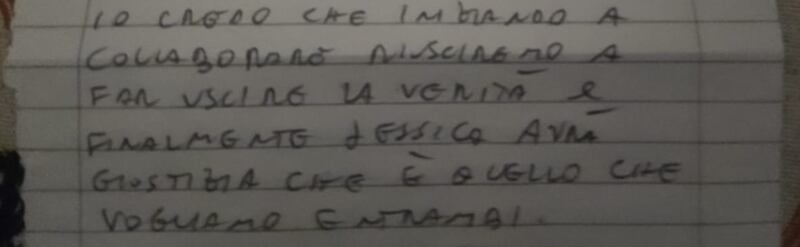 IO CREDO CHE INIZIANDO A
COLLABORARE RIUSCIREMO A
FAR USCIRE LA VERITÀ E
FINALMENTE JESSICA AVRÀ
GIUSTIZIA CHE È QUELLO CHE
VOGLIAMO ENTRAMBI.